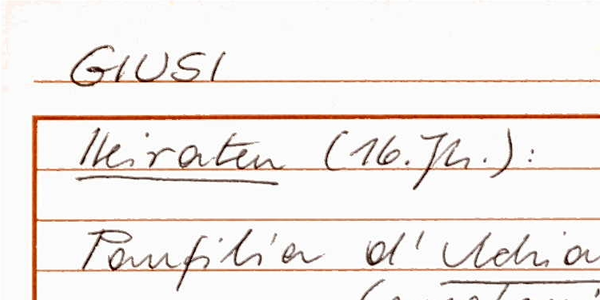 GIUSI
Heiraten (16. Jh.):
Panfilia d'